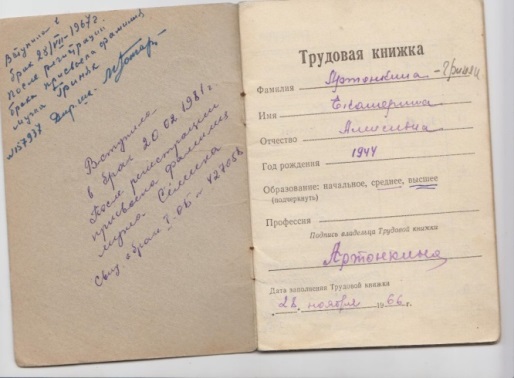 Вступила в
брак 28/VII-1967г.
После регистрации
брака присвоена фамилия
мужа
№157937
Вступила
в брак 20.02.1981г
После регистрации
присвоена фамилия
мужа
Свид. о браке I-ОБ-
Трудовая книжка
Фамилия Артонкина
Имя Екатерина
Отчество Алексеевна
Год рождения 1944
Образование: начальное, среднее, высшее
(подчеркнуть)
Профессия
Подпись владельца Трудовой книжки
Артонкина
Дата заполнения Трудовой книжки
28 ноября 1966 г.